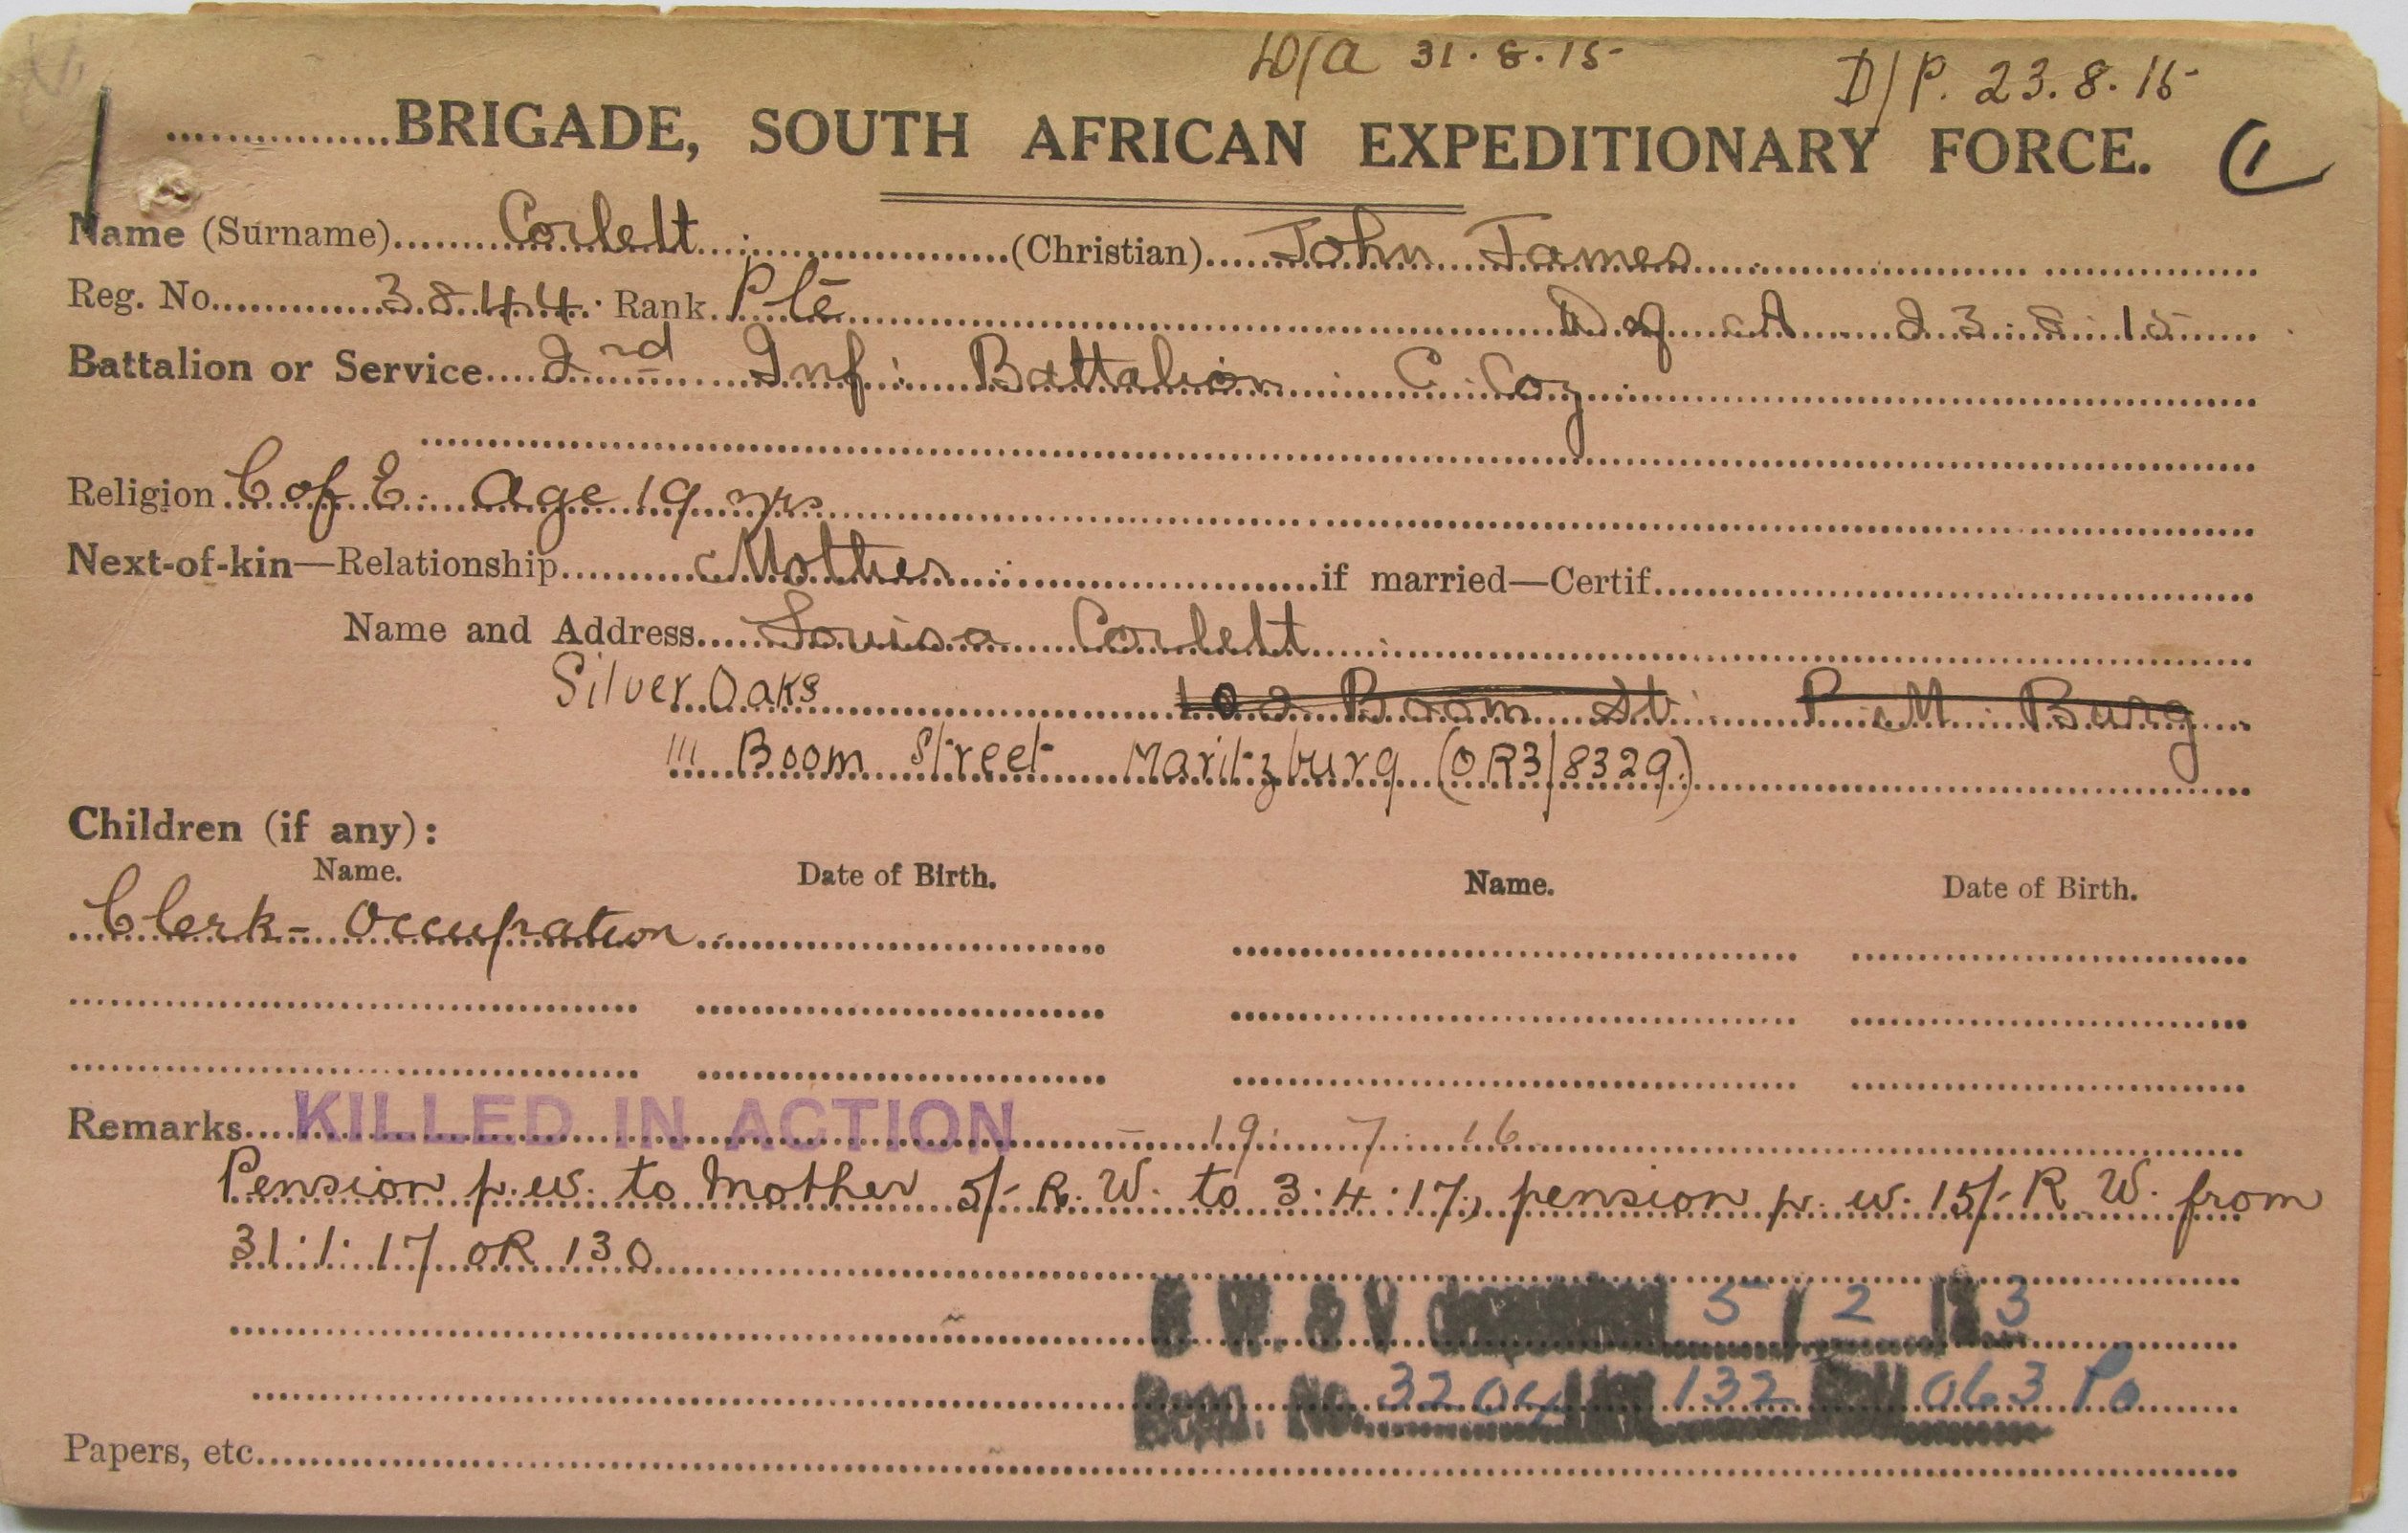 D/A 31.8.15 D/P. 23.8.15
................BRIGADE, SOUTH AFRICAN EXPEDITIONARY FORCE. 1
Name (Surname)......Corlett......(Christian)......John James......
Reg. No......3844. Rank Pte ...... D of A 23.8.15
Battalion or Service....2nd Inf: Battalion C Coy
Religion C of E. Age 19 yrs
Next-of-kin—Relationship......Mother......if married—Certif......
Name and Address....Louisa Corlett
Silver Oaks 102 Boom St P. M. Burg
111 Boom Street Maritzburg (OR3/8329)
Children (if any):
Name. Date of Birth. Name. Date of Birth.
Clerk - Occupation
Remarks....KILLED IN ACTION - 19.7.16
Pension p.w. to Mother 5/- R.W. to 3.4.17, pension p.w. 15/- R.W. from
31.1.17 OR 130
B W. & V 5/2/ 3
Regn. No. 3204 132 063 Po
Papers, etc......